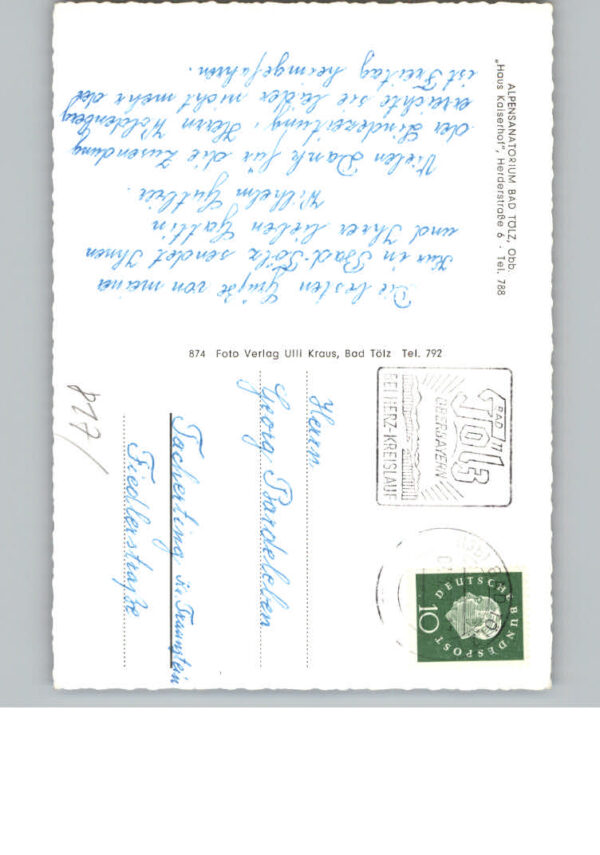 ALPENSANATORIUM BAD TÖLZ, Obb.
„Haus Kaiserhof", Herderstraße 6 - Tel. 788
Die besten Grüße von meiner
Kur in Bad-Tölz sendet Ihnen
und Ihrer lieben Gattin
Wilhelm
Vielen Dank für die Zusendung
der Linderzeitung. Herrn Woldenberg
erreichte sie leider nicht mehr der
ist Freitag heimgefahren.
874 Foto Verlag Ulli Kraus, Bad Tölz Tel. 792
BAD
Tölz
OBERBAYERN
BEI HERZ-KREISLAUF
DEUTSCHE BUNDESPOST
10
Herrn
Georg Bardeleben
Tacherting in Traunstein
Fiedlerstraße
827/